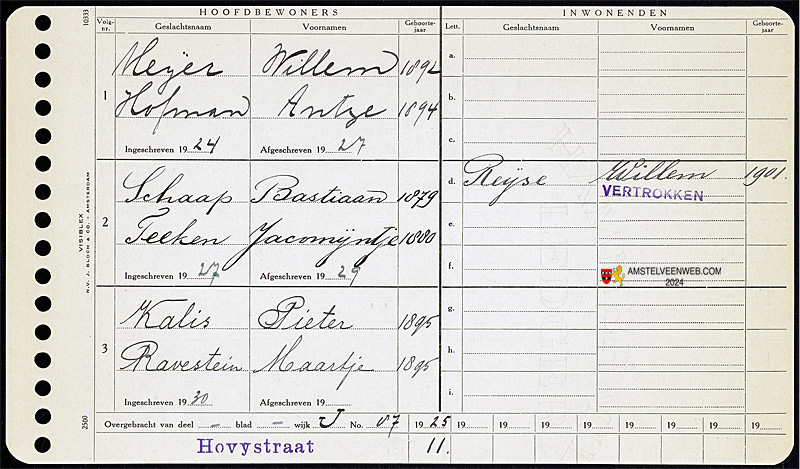 HOOFDBEWONERS
INWONENDEN
Volg-nr. Geslachtsnaam Voornamen Geboorte-jaar Lett. Geslachtsnaam Voornamen Geboorte-jaar
10333
1
Meyer Willem 1892
Hofman Antje 1894
Ingeschreven 1924 Afgeschreven 1927
a.
b.
c.
2
Schaap Bastiaan 1879
Teeken Jacomijntje 1880
Ingeschreven 1927 Afgeschreven 1929
d. Reijse Willem 1901.
VERTROKKEN
e.
f.
AMSTELVEENWEB.COM
2024
3
Kalis Pieter 1895
Ravestein Maartje 1895
Ingeschreven 1930 Afgeschreven 19
g.
h.
i.
VISIBLEX
N.V. J. BLOCH & CO. - AMSTERDAM
2500
Overgebracht van deel – blad – wijk J No. 87 1925 19 19 19 19 19 19 19 19
Hovystraat 11.